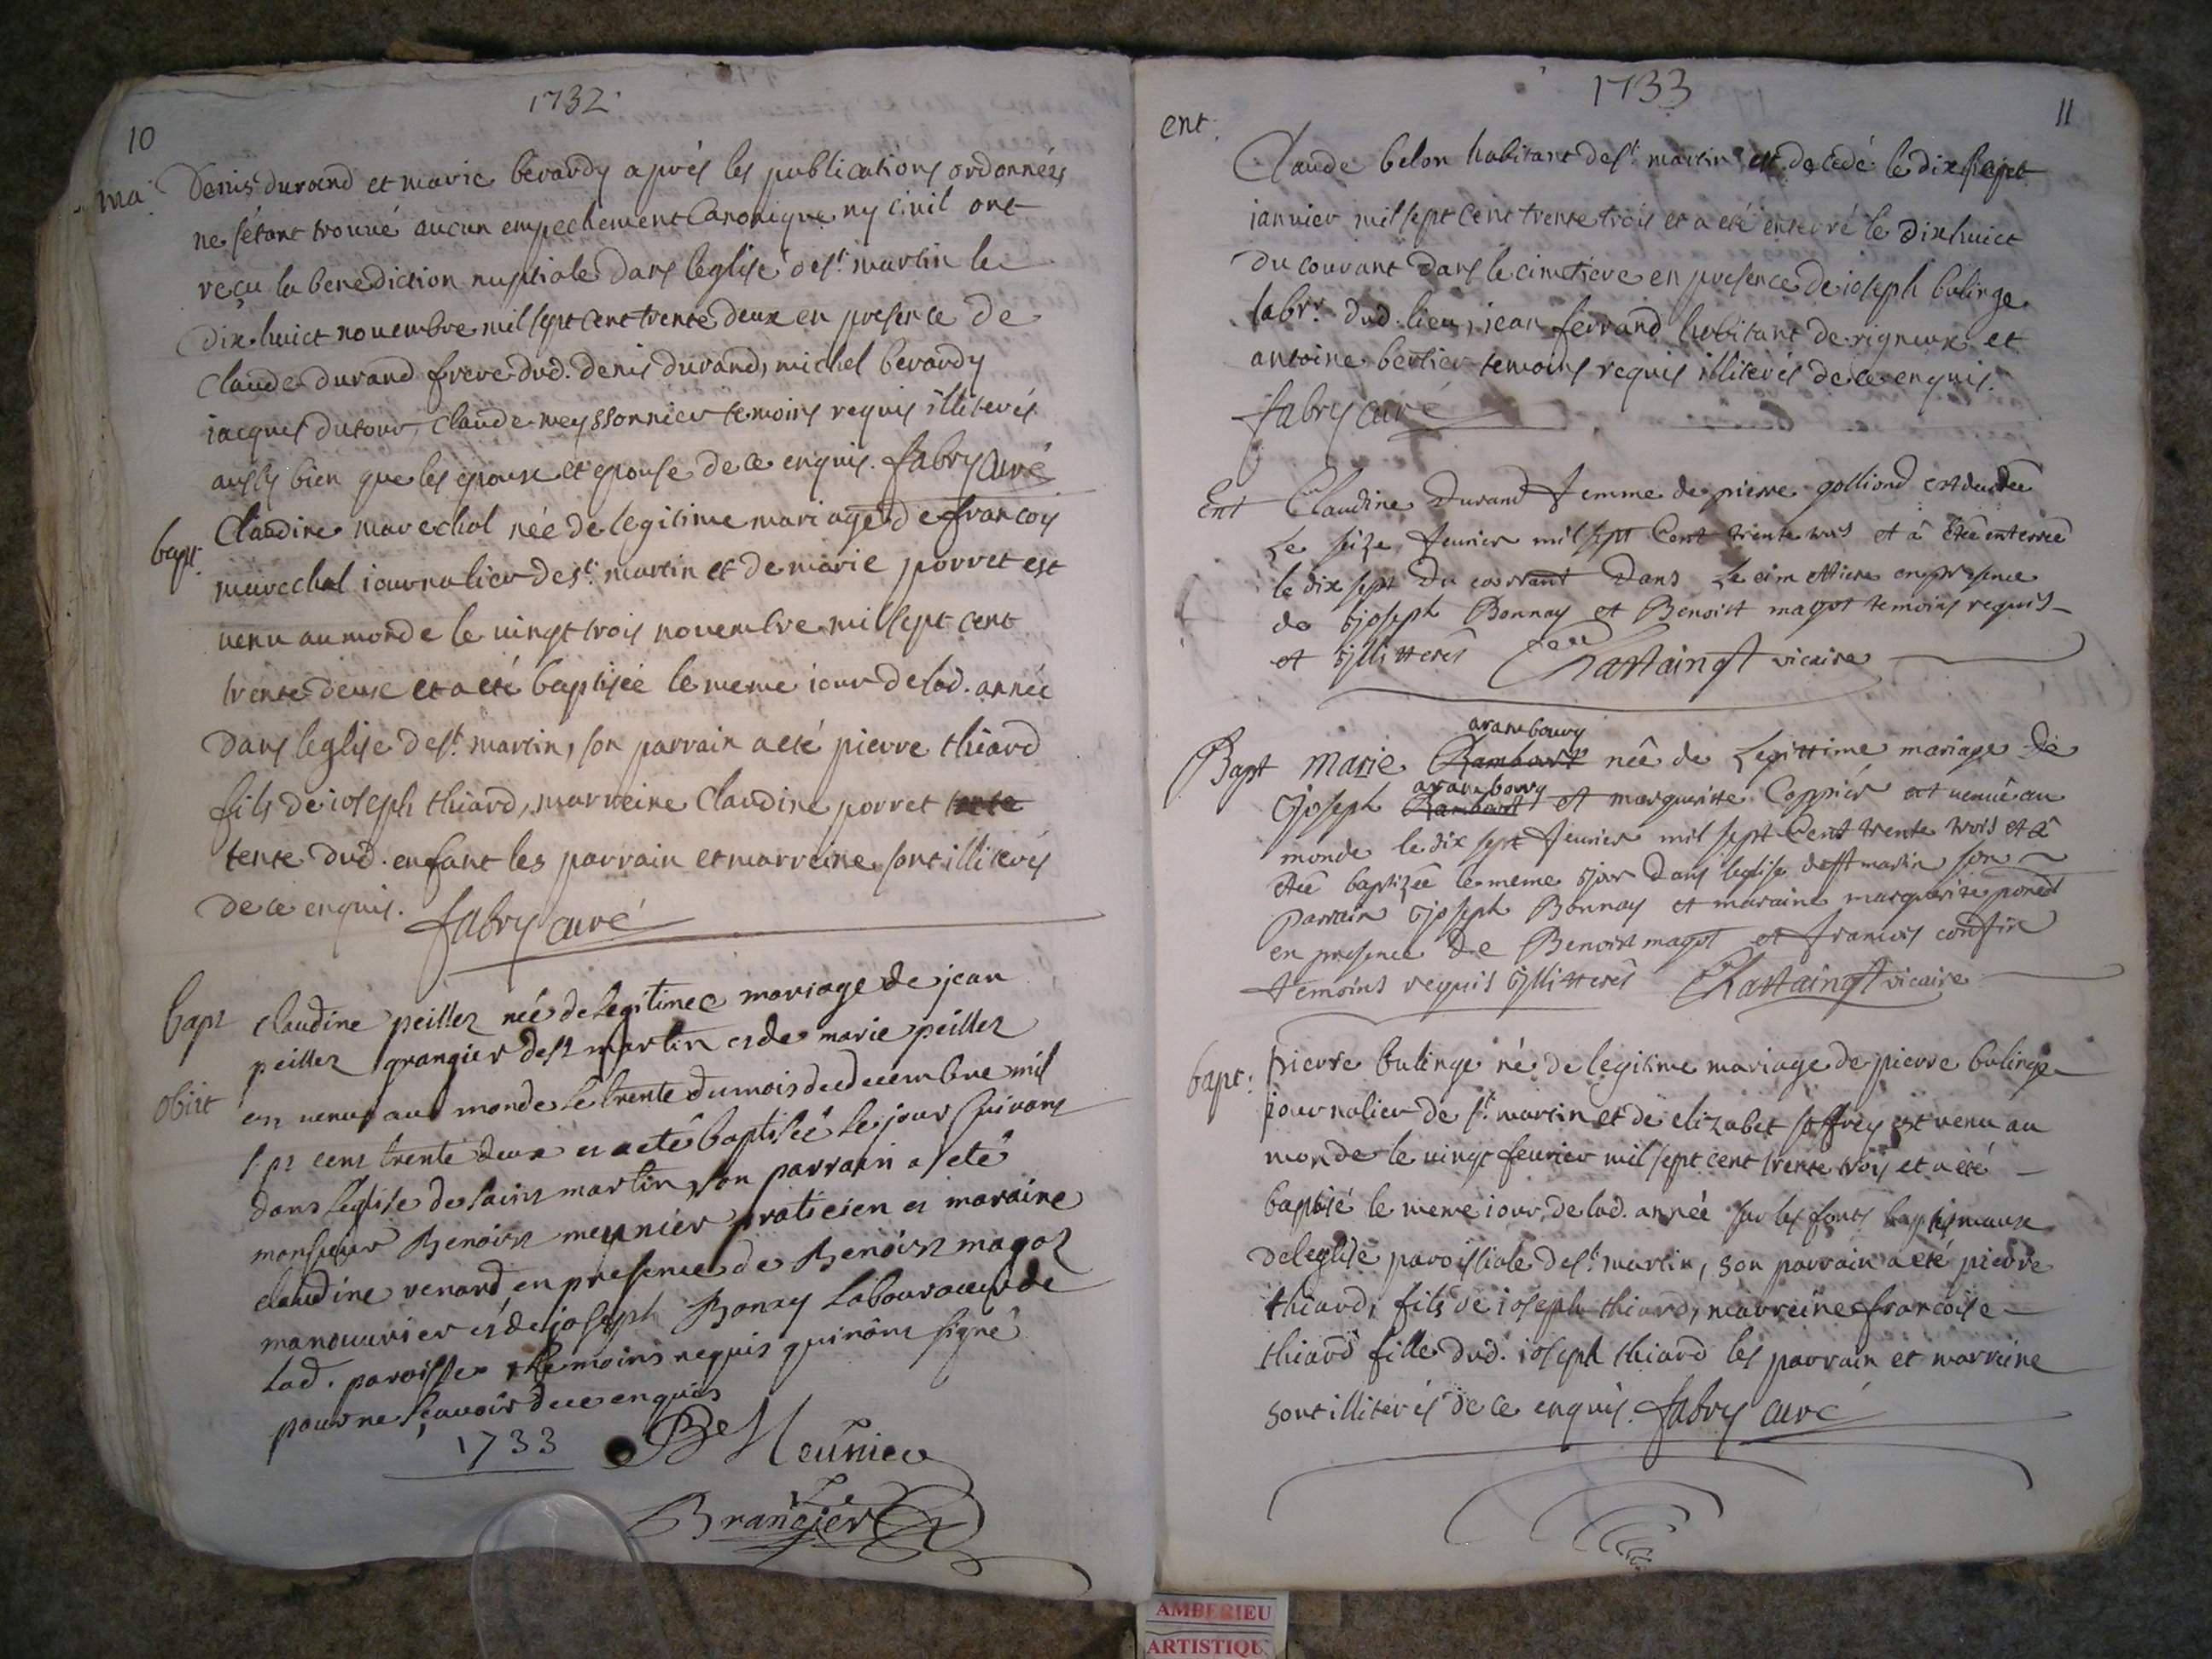 1732
10
ma. Denis durand et marie berardy aprés les publications ordonnées
ne s'étant trouué aucun empechement Canonique ny ciuil ont
reçu la benediction nuptiale dans l'eglise de st. martin le
dix huict nouembre mil sept cent trente deux en presence de
Claude durand frere dud. denis durand, michel berardy
iacques dutour, Claude meyssonnier temoins requis illiterés
aussy bien que les epoux et epouse de ce enquis. fabry curé
bapt. Claudine marechal née de legitime mariage de francois
marechal iournalier de st. martin et de marie porret est
venu au monde le uingt trois nouembre mil sept cent
trente deux et a eté baptisée le meme iour de lad. année
dans l'eglise de st. martin, son parrain a eté pierre thiard
fils de ioseph thiard, marreine Claudine porret tente
tente dud. enfant les parrain et marreine sont illiterés
de ce enquis. fabry curé
bapt claudine peillez née de legitimee mariage de jean
peillez grangier de st martin et de marie peillez
obiit est venue au monde le trente du mois de decembre mil
sept cent trente deux et a eté baptisée le jour suivant
dans l'eglise de saint martin, son parrain a eté
monsieur Benoist meynier praticien et maraine
claudine renard, en presence de Benoist magot
manouurier et de joseph Bonnay laboureur de
lad. paroisse temoins requis qui n'ont signé
pour ne sçauoir de ce enquis
1733 Be Meünier
Brangier
1733
11
ent. Claude belon habitant de st. martin est decedé le dix sept
ianuier mil sept cent trente trois et a eté enterré le dix huict
du courant dans le cimetiere en presence de ioseph bulinge
labr. dud. lieu, iean ferrand habitant de rigneux et
antoine bertier temoins requis illiterés de ce enquis.
fabry curé
Ent Claudine Durand femme de pierre golliond est decedée
Le seize feurier mil sept Cent trente trois et â êtée enterrée
le dix sept du courrant Dans Le cimettiere en presence
de joseph Bonnay et Benoist magot temoins requis
et jllitterés Chastaingt vicaire
arambourg
Bapt Marie Rambourt née de Legittime mariage de
arambourg
joseph Rambourt et margueritte Coppiér est venüe au
monde le dix sept feurier mil sept Cent trente trois et â
êtée baptizée le meme jour Dans l'eglise de st martin son
Parrain joseph Bonnay et maraine marguerite poret
en presence de Benoist magot et francois confin
temoins requis jllitterés Chastaingt vicaire
bapt: pierre bulinge né de légitime mariage de pierre bulinge
journalier de st. martin et de elizabet joffrey est venu au
monde le uingt feurier mil sept cent trente trois et a eté
baptisé le meme iour, de lad. année sur les fonts baptismaux
de l'eglise paroissiale de st. martin, son parrain a eté pierre
thiard, fils de ioseph thiard, marreine francoise
thiard fille dud. ioseph thiard les parrain et marreine
sont illiterés de ce enquis. fabry curé
AMBERIEU
ARTISTIQU